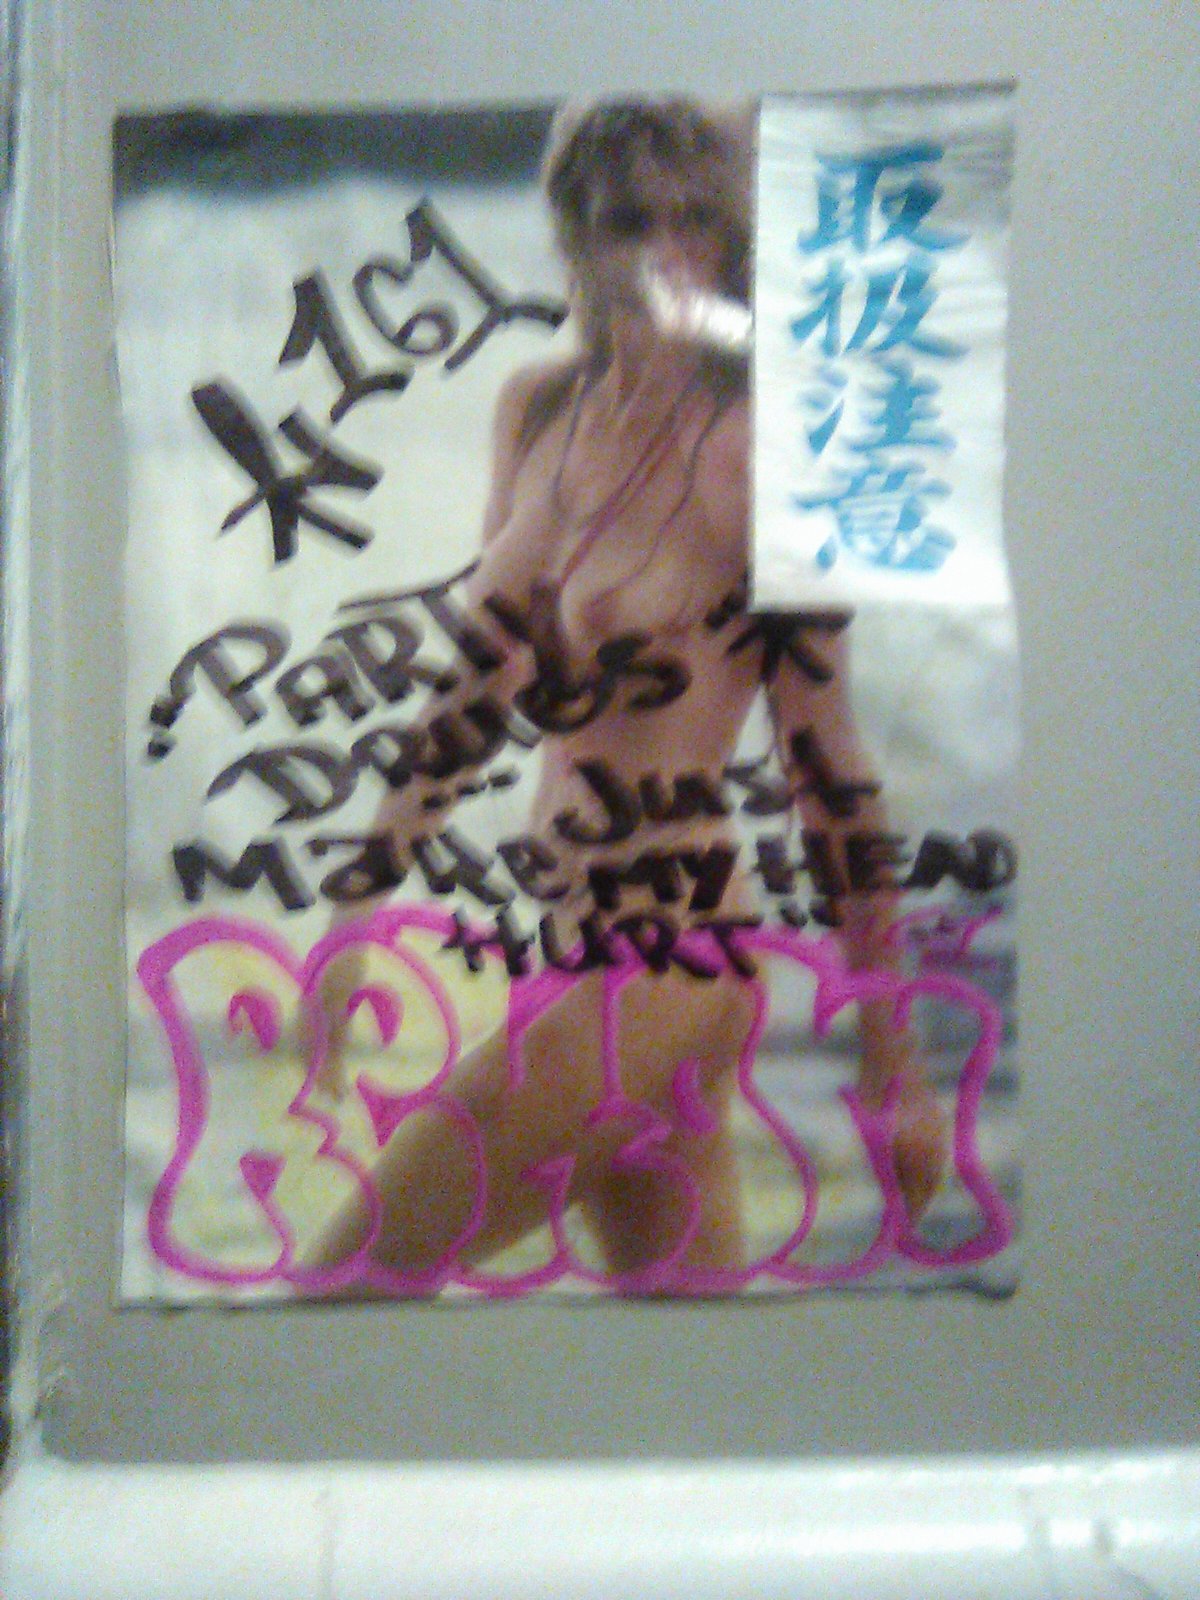 取扱注意
"PARTY
DRUGS"
Just
Make MY HEAD
HURT